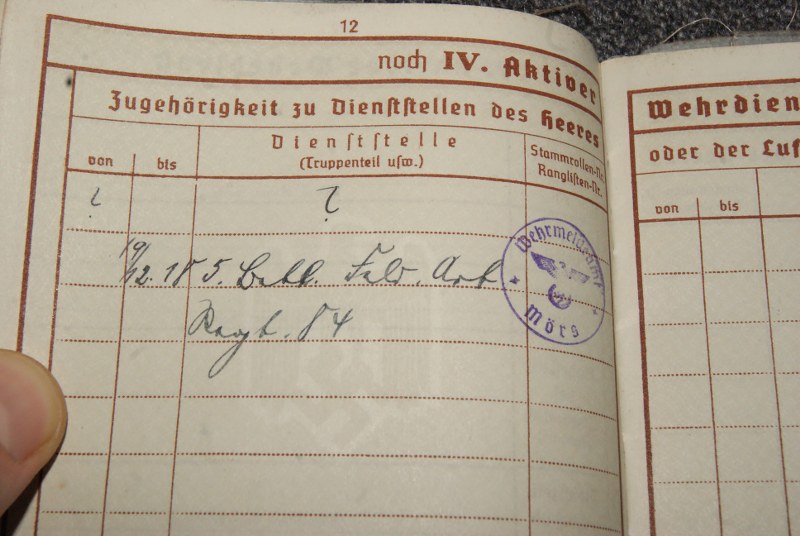 12
noch IV. Aktiver
Zugehörigkeit zu Dienststellen des Heeres
von
bis
Dienststelle
(Truppenteil usw.)
Stammrollen-Nr.
Ranglisten-Nr.
?
?
19/12. 18 5. Batt. Feld. Art.
Regt. 84
Wehrmeldeamt
Mörs
Wehrdien
oder der Luf
von
bis